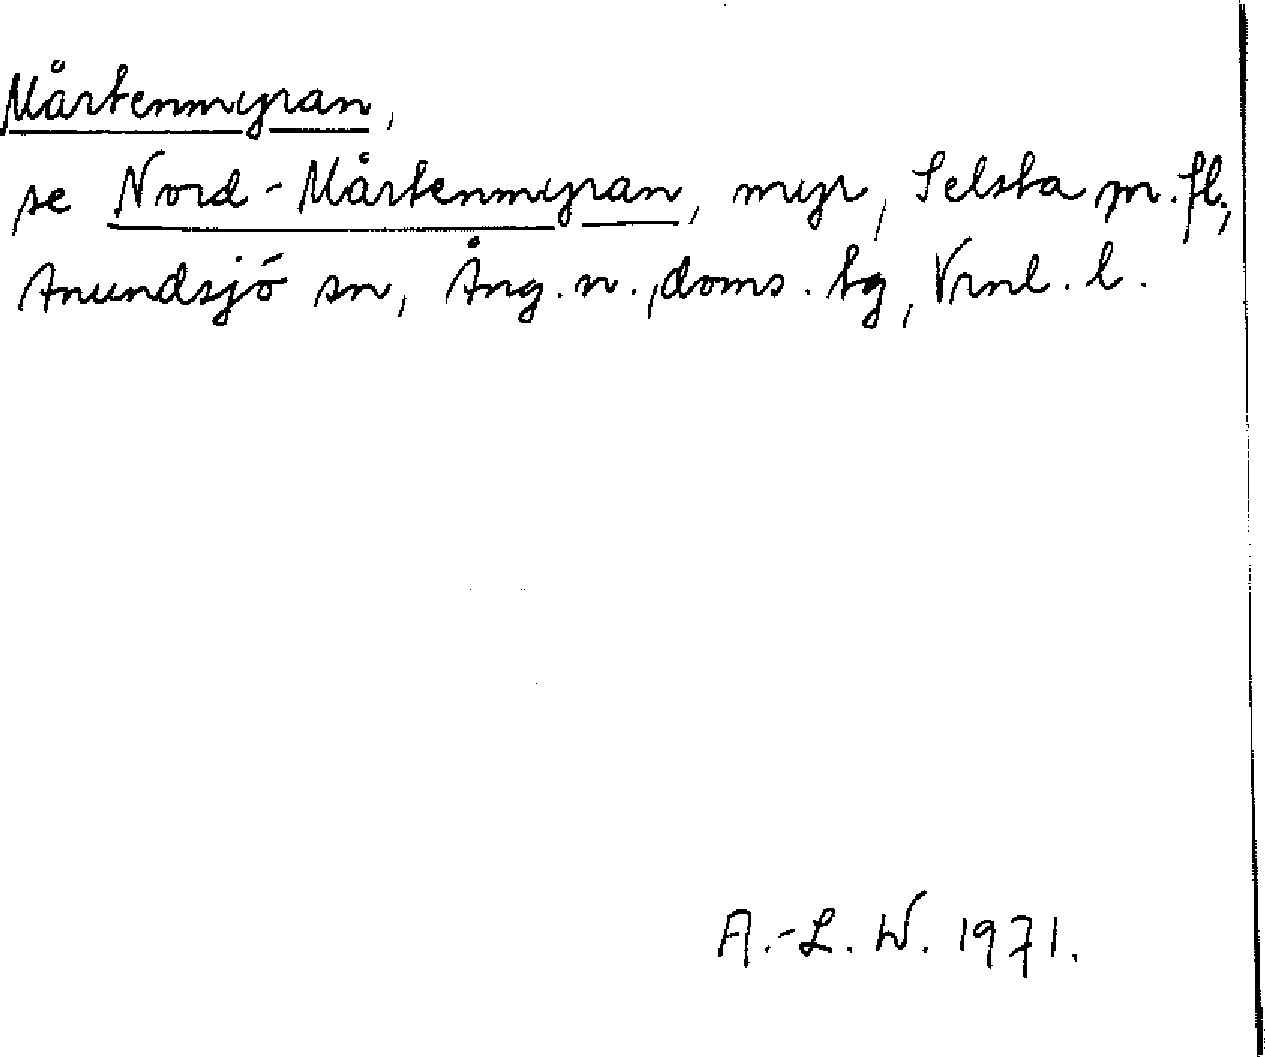 Mårtenmyran,
se Nord-Mårtenmyran, myr, Selsta m.fl.,
Anundsjö sn, Ång. n., doms. tg, Vrnl. l.
A.-L. W. 1971.